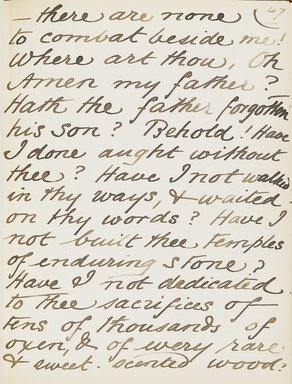 – there are none 47
to combat beside me!
Where art thou, Oh
Amen my father?
Hath the father forgotten
his son? Behold! Have
I done aught without
thee? Have I not walked
in thy ways, & waited
on thy words? Have I
not built thee temples
of enduring stone?
Have I not dedicated
to thee sacrifices of
tens of thousands of
oxen, & of every rare
& sweet-scented wood?